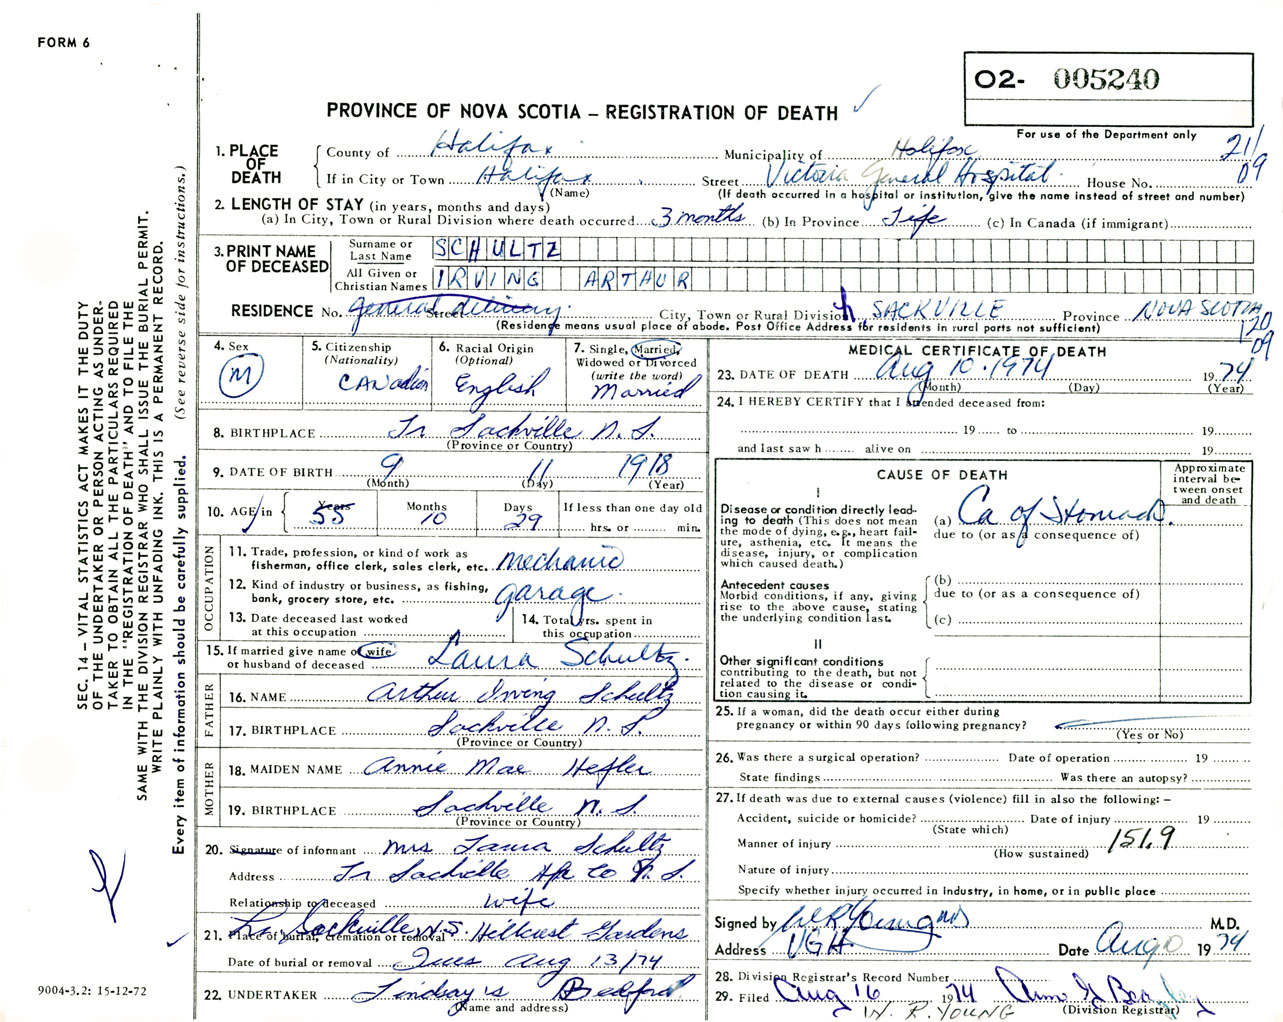 FORM 6
O2- 005240
For use of the Department only
PROVINCE OF NOVA SCOTIA – REGISTRATION OF DEATH
21/09
1. PLACE OF DEATH
County of Halifax Municipality of Halifax
If in City or Town Halifax Street Victoria General Hospital House No.
(Name) (If death occurred in a hospital or institution, give the name instead of street and number)
2. LENGTH OF STAY (in years, months and days)
(a) In City, Town or Rural Division where death occurred 3 months (b) In Province Life (c) In Canada (if immigrant)
3. PRINT NAME OF DECEASED
Surname or Last Name SCHULTZ
All Given or Christian Names IRVING ARTHUR
RESIDENCE No. general delivery Street City, Town or Rural Division SACKVILLE Province NOVA SCOTIA
(Residence means usual place of abode. Post Office Address for residents in rural parts not sufficient)
120
09
4. Sex
M
5. Citizenship
(Nationality)
CANadian
6. Racial Origin
(Optional)
English
7. Single, Married,
Widowed or Divorced
(write the word)
Married
8. BIRTHPLACE Lr Sackville N.S.
(Province or Country)
9. DATE OF BIRTH 9 11 1918
(Month) (Day) (Year)
10. AGE in
Years 55
Months 10
Days 29
If less than one day old
hrs. or min.
OCCUPATION
11. Trade, profession, or kind of work as
fisherman, office clerk, sales clerk, etc. mechanic
12. Kind of industry or business, as fishing,
bank, grocery store, etc. garage.
13. Date deceased last worked
at this occupation
14. Total yrs. spent in
this occupation
15. If married give name of wife
or husband of deceased Laura Schultz.
FATHER
16. NAME Arthur Irving Schultz
17. BIRTHPLACE Sackville N.S.
(Province or Country)
MOTHER
18. MAIDEN NAME Annie Mae Hefler
19. BIRTHPLACE Sackville N.S.
(Province or Country)
20. Signature of informant Mrs Laura Schultz
Address Lr Sackville Hfx Co N.S
Relationship to deceased wife
21. Place of burial, cremation or removal Lr Sackville N.S. Hillcrest Gardens
Date of burial or removal Tues Aug 13/74
22. UNDERTAKER Lindsay's Bedford
(Name and address)
MEDICAL CERTIFICATE OF DEATH
23. DATE OF DEATH Aug 10. 1974 1974
(Month) (Day) (Year)
24. I HEREBY CERTIFY that I attended deceased from:
19 to 19
and last saw h alive on 19
CAUSE OF DEATH
Approximate interval between onset and death
I
Disease or condition directly leading to death (This does not mean the mode of dying, e.g., heart failure, asthenia, etc. It means the disease, injury, or complication which caused death.)
(a) Ca of Stomach.
due to (or as a consequence of)
Antecedent causes
Morbid conditions, if any, giving rise to the above cause, stating the underlying condition last.
(b)
due to (or as a consequence of)
(c)
II
Other significant conditions
contributing to the death, but not related to the disease or condition causing it.
25. If a woman, did the death occur either during
pregnancy or within 90 days following pregnancy?
(Yes or No)
26. Was there a surgical operation? Date of operation 19
State findings Was there an autopsy?
27. If death was due to external causes (violence) fill in also the following: –
Accident, suicide or homicide? Date of injury 19
(State which)
Manner of injury 151.9
(How sustained)
Nature of injury
Specify whether injury occurred in industry, in home, or in public place
Signed by W.R. Young MD M.D.
Address VGH Date Aug 10 1974
28. Division Registrar's Record Number
29. Filed Aug 16 1974
(Division Registrar)
W. R. YOUNG
SEC. 14 – VITAL STATISTICS ACT MAKES IT THE DUTY
OF THE UNDERTAKER OR PERSON ACTING AS UNDER-
TAKER TO OBTAIN ALL THE PARTICULARS REQUIRED
IN THE "REGISTRATION OF DEATH" AND TO FILE THE
SAME WITH THE DIVISION REGISTRAR WHO SHALL ISSUE THE BURIAL PERMIT.
WRITE PLAINLY WITH UNFADING INK. THIS IS A PERMANENT RECORD.
Every item of information should be carefully supplied. (See reverse side for instructions.)
9004-3.2: 15-12-72